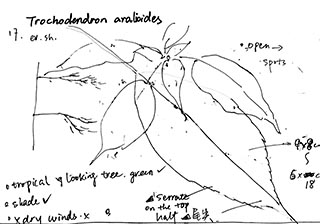 Trochodendron aralioides
17. er. sh.
• open →
spots
• tropical looking tree. green ✓
• shade ✓
• x dry winds. x
serrate
on the top
half
18